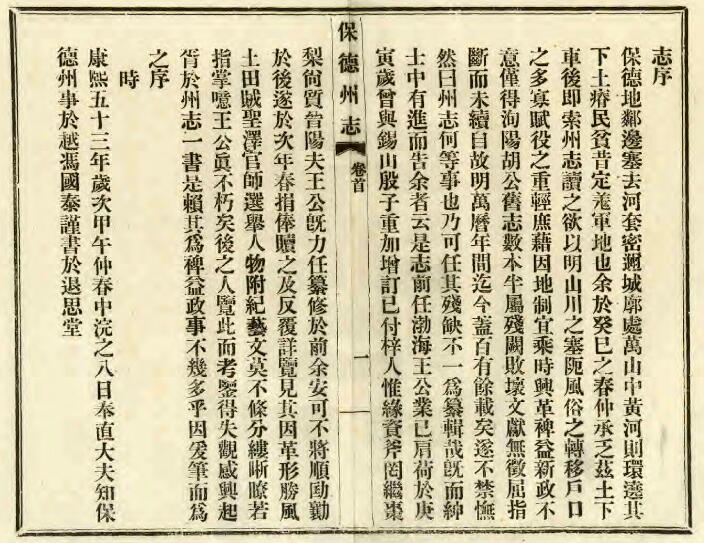 志序
保德地鄰邊塞去河套密邇城廓處萬山中黃河則環遶其
下土瘠民貧昔定羗軍地也余於癸巳之春仲承乏茲土下
車後即索州志讀之欲以明山川之塞阨風俗之轉移戶口
之多寡賦役之重輕庶藉因地制宜乘時興革裨益新政不
意僅得洵陽胡公舊志數本半屬殘闕敗壞文獻無徵屈指
斷而未續自故明萬曆年間迄今蓋百有餘載矣遂不禁憮
然曰州志何等事也乃可任其殘缺不一爲纂輯哉旣而紳
士中有進而告余者云是志前任渤海王公業已肩荷於庚
寅歲曾與錫山殷子重加增訂已付梓人惟緣資斧罔繼棗
保德州志
卷首
一
梨尙質晉陽夫王公旣力任纂修於前余安可不將順勷
於後遂於次年春捐俸贖之及反覆詳覽見其因革形勝風
土田賦聖澤官師選舉人物附紀藝文莫不條分縷晰瞭若
指掌噫王公眞不朽矣後之人覽此而考鑒得失觀感興起
胥於州志一書是賴其爲裨益政事不幾多乎因爰筆而爲
之序
時
康熙五十三年歲次甲午仲春中浣之八日奉直大夫知保
德州事於越馮國泰謹書於退思堂